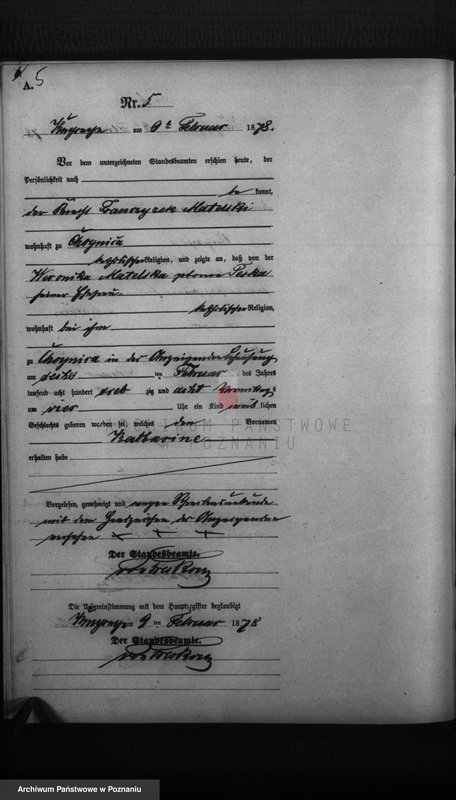 A. 5
Nr. 5
am 9t Februar 1878.
Vor dem unterzeichneten Standesbeamten erschien heute, der
Persönlichkeit nach
be kannt,
der Knecht Franciszek Matelski
wohnhaft zu Chojnica
katholischer Religion, und zeigte an, daß von der
Weronika Matelska geborne
seiner Ehefrau
katholischer Religion,
wohnhaft bei ihm
zu Chojnica in der Anzeigenden Behausung
am sechs ten Februar des Jahres
tausend acht hundert sieb zig und acht Vormittags
um vier Uhr ein Kind weib lichen
Geschlechts geboren worden sei, welches den Vornamen
Katharine
erhalten habe
Vorgelesen, genehmigt und wegen Schreibensunkunde
mit dem Handzeichen des Anzeigenden
versehen + + +
Der Standesbeamte.
Die Uebereinstimmung mit dem Hauptregister beglaubigt
am 9 ten Februar 1878
Der Standesbeamte.
ARCHIWUM PAŃSTWOWE
W POZNANIU
Archiwum Państwowe w Poznaniu